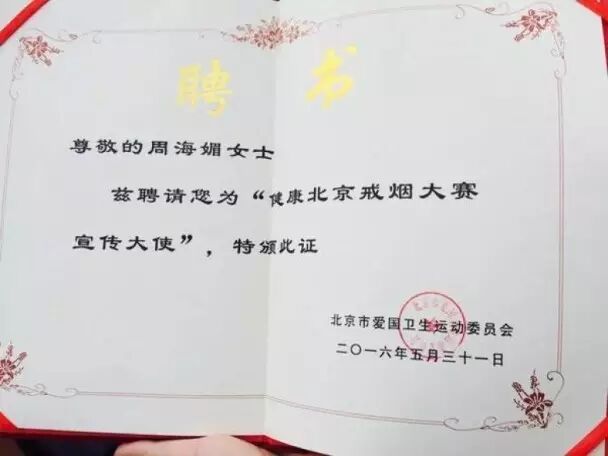 聘书
尊敬的周海媚女士
兹聘请您为“健康北京戒烟大赛
宣传大使”，特颁此证
北京市爱国卫生运动委员会
二〇一六年五月三十一日